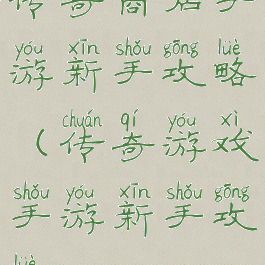 传奇商店手
yóu xīn shǒu gōng lüè
游新手攻略
chuán qí yóu xì
（传奇游戏
shǒu yóu xīn shǒu gōng
手游新手攻
lüè